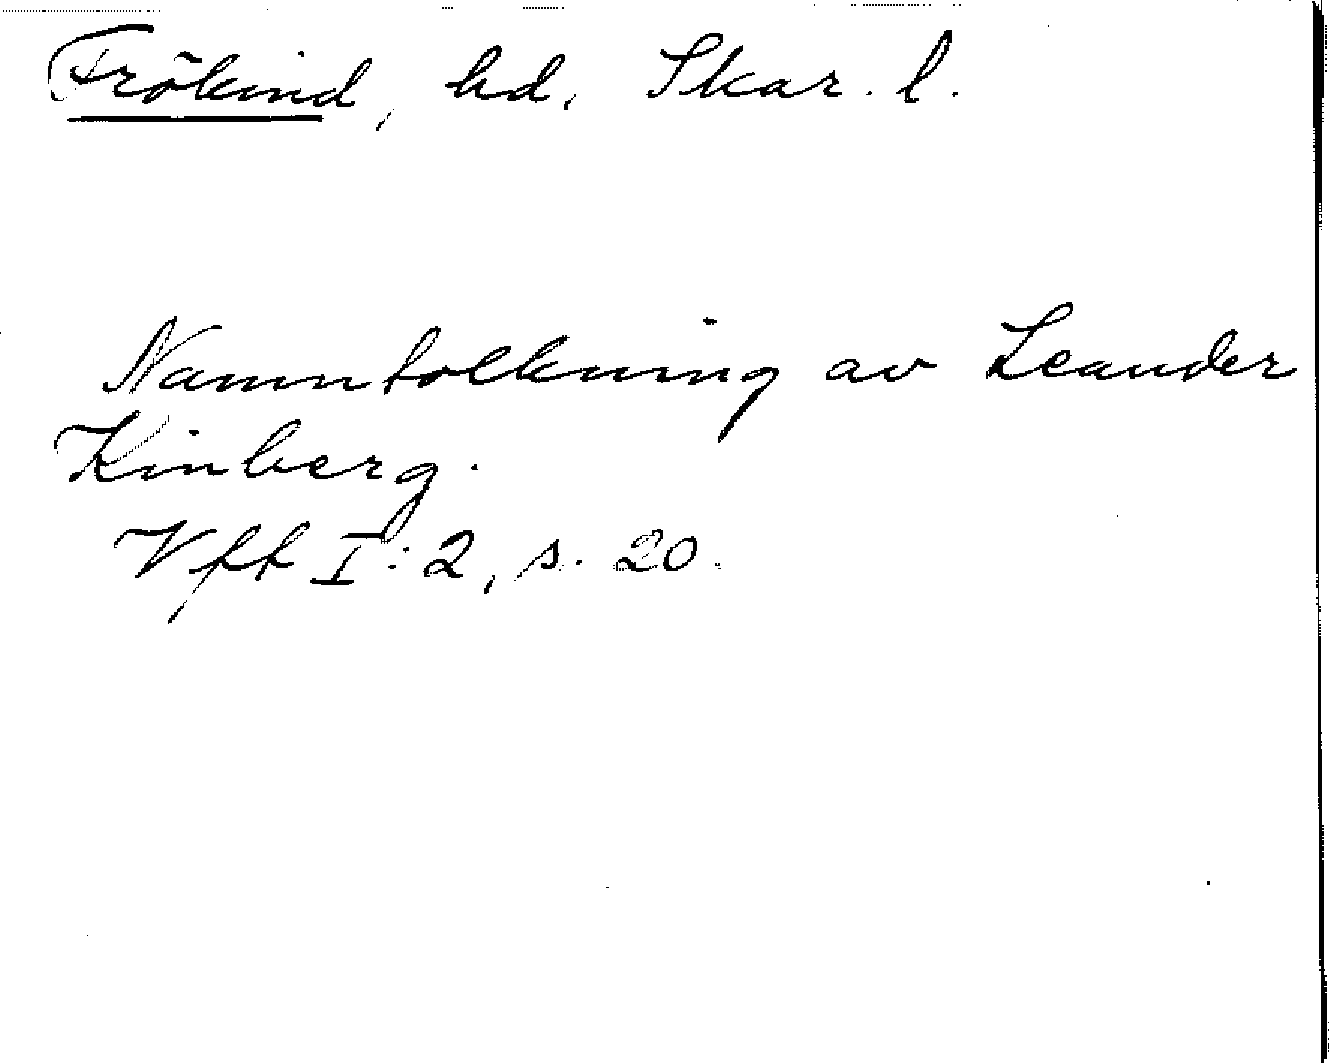 Frökind, hd, Skar. l.
Namntolkning av Leander
Kinberg.
Vft I:2, s. 20.